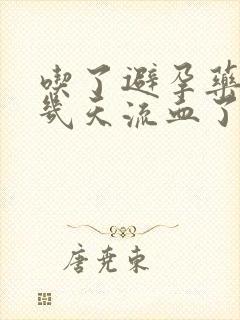 喫了避孕藥
幾天流血了
唐堯東